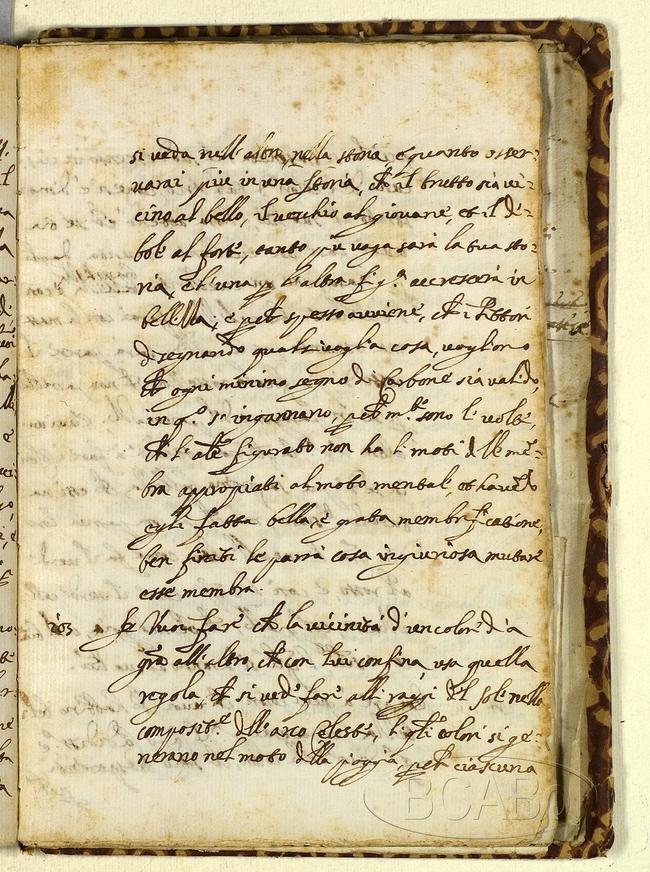 si veda nell'altra, nella storia, e quanto osser-
varai più in una storia, ch' il brutto sia vi-
cino al bello, il vecchio al giovane, et il de-
bole al forte, tanto più vaga sarà la tua sto-
ria, e l'una p l'altra fig.ª accrescerà in
bellezza; e perch spesso avviene, ch i Pittori
disegnando qualsivoglia cosa, vogliono
ch ogni minimo segno di Carbone sia valido,
in q.º s'ingannano, perch m.te sono le volte,
ch l'ale figurato non ha li moti delle me-
bra appropiati al moto mentale, et havedo
egli fatta bella, e grata membrificatione,
ben finiti le parrà cosa ingiuriosa mutare
esse membra.
103 Se Vuoi fare ch la vicinità d'un colore dia
gra all'altro, ch con lui confina, usa quella
regola, ch si vede fare alli raggi del sole nella
composit.e dell'arco Celeste, li qli colori si ge-
nerano nel moto della pioggia, perch ciascuna
BCABo